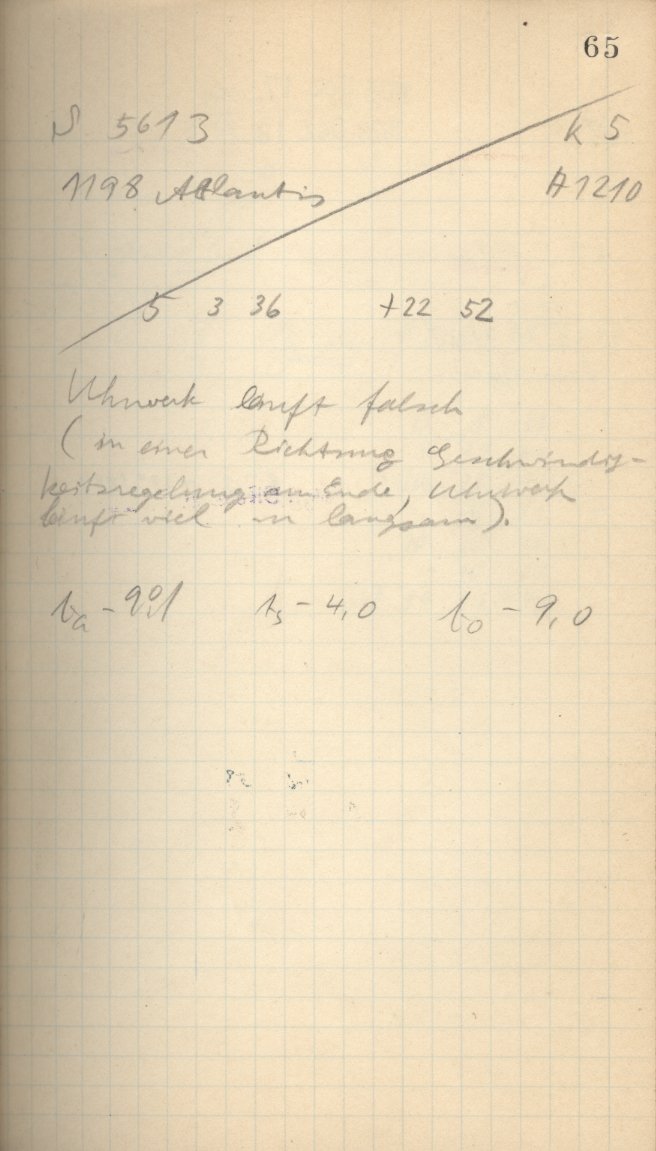 65
S 5613 k 5
1198 Atlantis A 1210
5 3 36 +22 52
Uhrwerk läuft falsch
(in einer Richtung Geschwindig-
keitsregelung am Ende, Uhrwerk
läuft viel zu langsam).
ta - 9°,1 ts - 4,0 to - 9,0